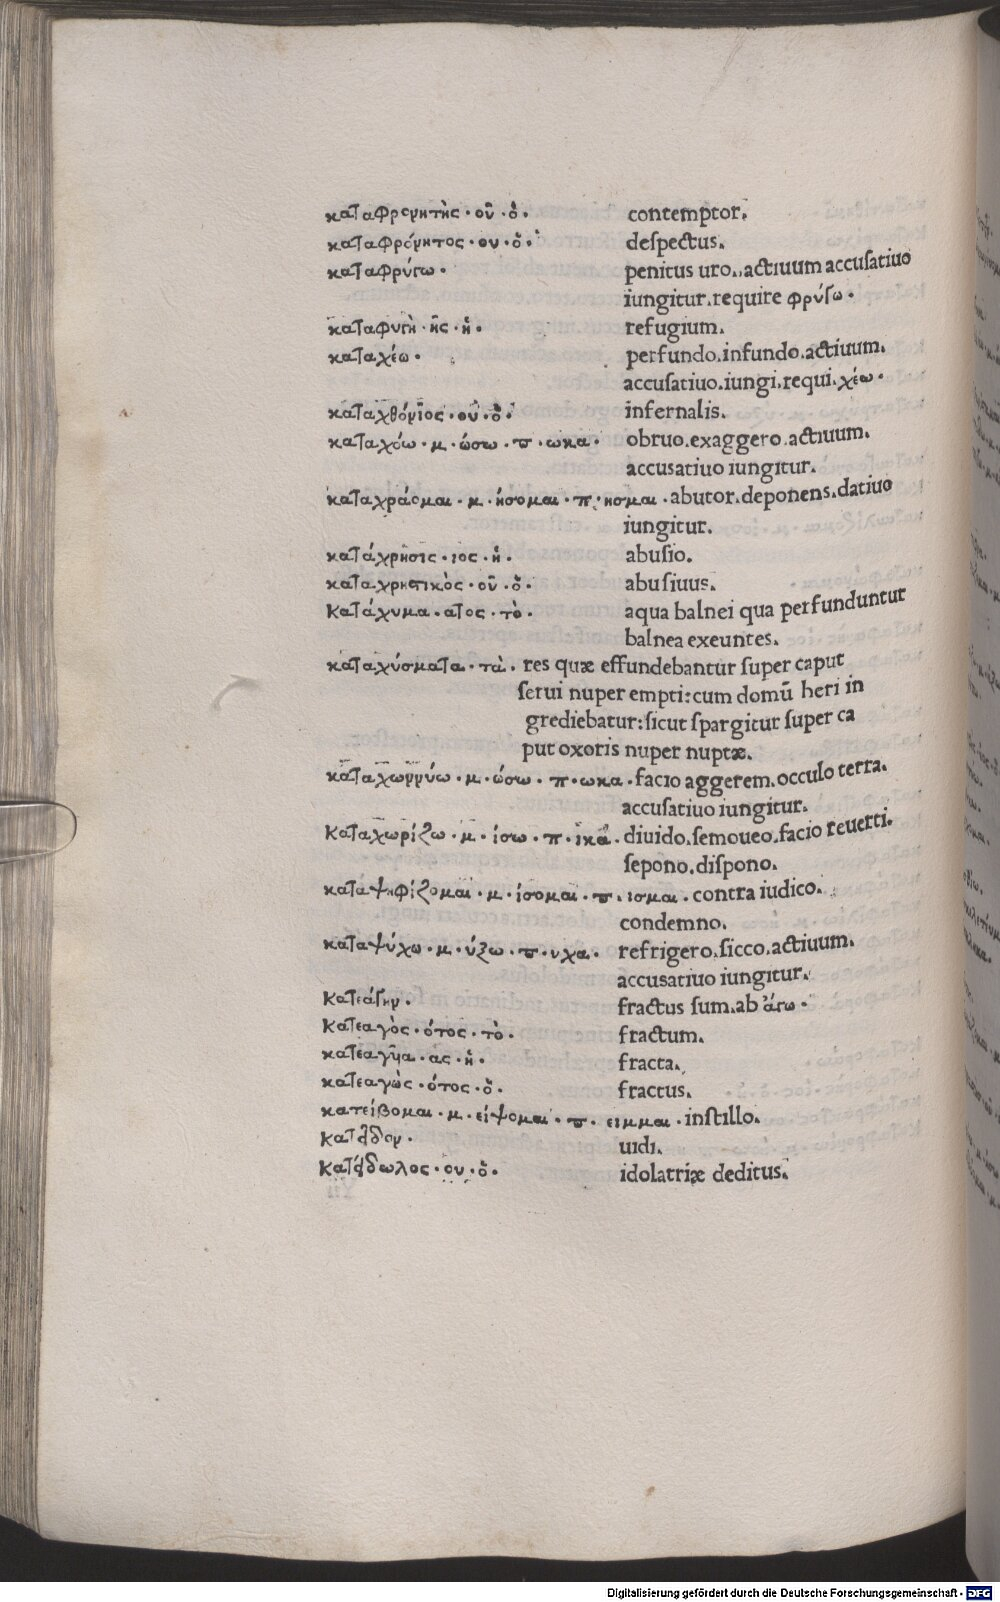 καταφρονητὴς · οῦ · ὁ. contemptor.
καταφρόνητος · ου · ὁ. deſpectus.
καταφρύγω · penitus uro., actiuum accuſatiuo
iungitur.require φρύγω ·
καταφυγὴ · ῆς · ἡ. refugium.
καταχέω · perfundo.infundo.actiuum.
accuſatiuo.iungi.requi.χέω ·
καταχθόνιος · ου · ὁ. infernalis.
καταχόω · μ · ώσω · π · ωκα · obruo.exaggero.actiuum.
accuſatiuo iungitur.
καταχράομαι · μ · ήσομαι · π · ησμαι · abutor.deponens.datiuo
iungitur.
κατάχρησις · ιος · ἡ. abuſio.
καταχρηστικὸς · οῦ · ὁ. abuſiuus.
Κατάχυμα · ατος · τὸ. aqua balnei qua perfunduntur
balnea exeuntes.
καταχύσματα · τὰ · res quæ effundebantur ſuper caput
ſerui nuper empti:cum domū heri in
grediebatur:ſicut ſpargitur ſuper ca
put oxoris nuper nuptæ.
καταχωννύω · μ · ώσω · π · ωκα · facio aggerem.occulo terra.
accuſatiuo iungitur.
Καταχωρίζω · μ · ίσω · π · ικα · diuido.ſemoueo.facio reuerti.
ſepono.diſpono.
καταψηφίζομαι · μ · ίσομαι · π · ισμαι · contra iudico.
condemno.
καταψύχω · μ · ύξω · π · υχα · refrigero.ſicco.actiuum.
accusatiuo iungitur.
Κατεάγην. fractus ſum.ab ἄγω ·
Κατεαγὸς · ότος · τὸ. fractum.
κατεαγῆα · ας · ἡ. fracta.
κατεαγὼς · ότος · ὁ. fractus.
κατείβομαι · μ · είψομαι · π · ειμμαι · inſtillo.
Κατεῖδον. uidi.
Κατείδωλος · ου · ὁ. idolatriæ deditus.
Digitalisierung gefördert durch die Deutsche Forschungsgemeinschaft - DFG